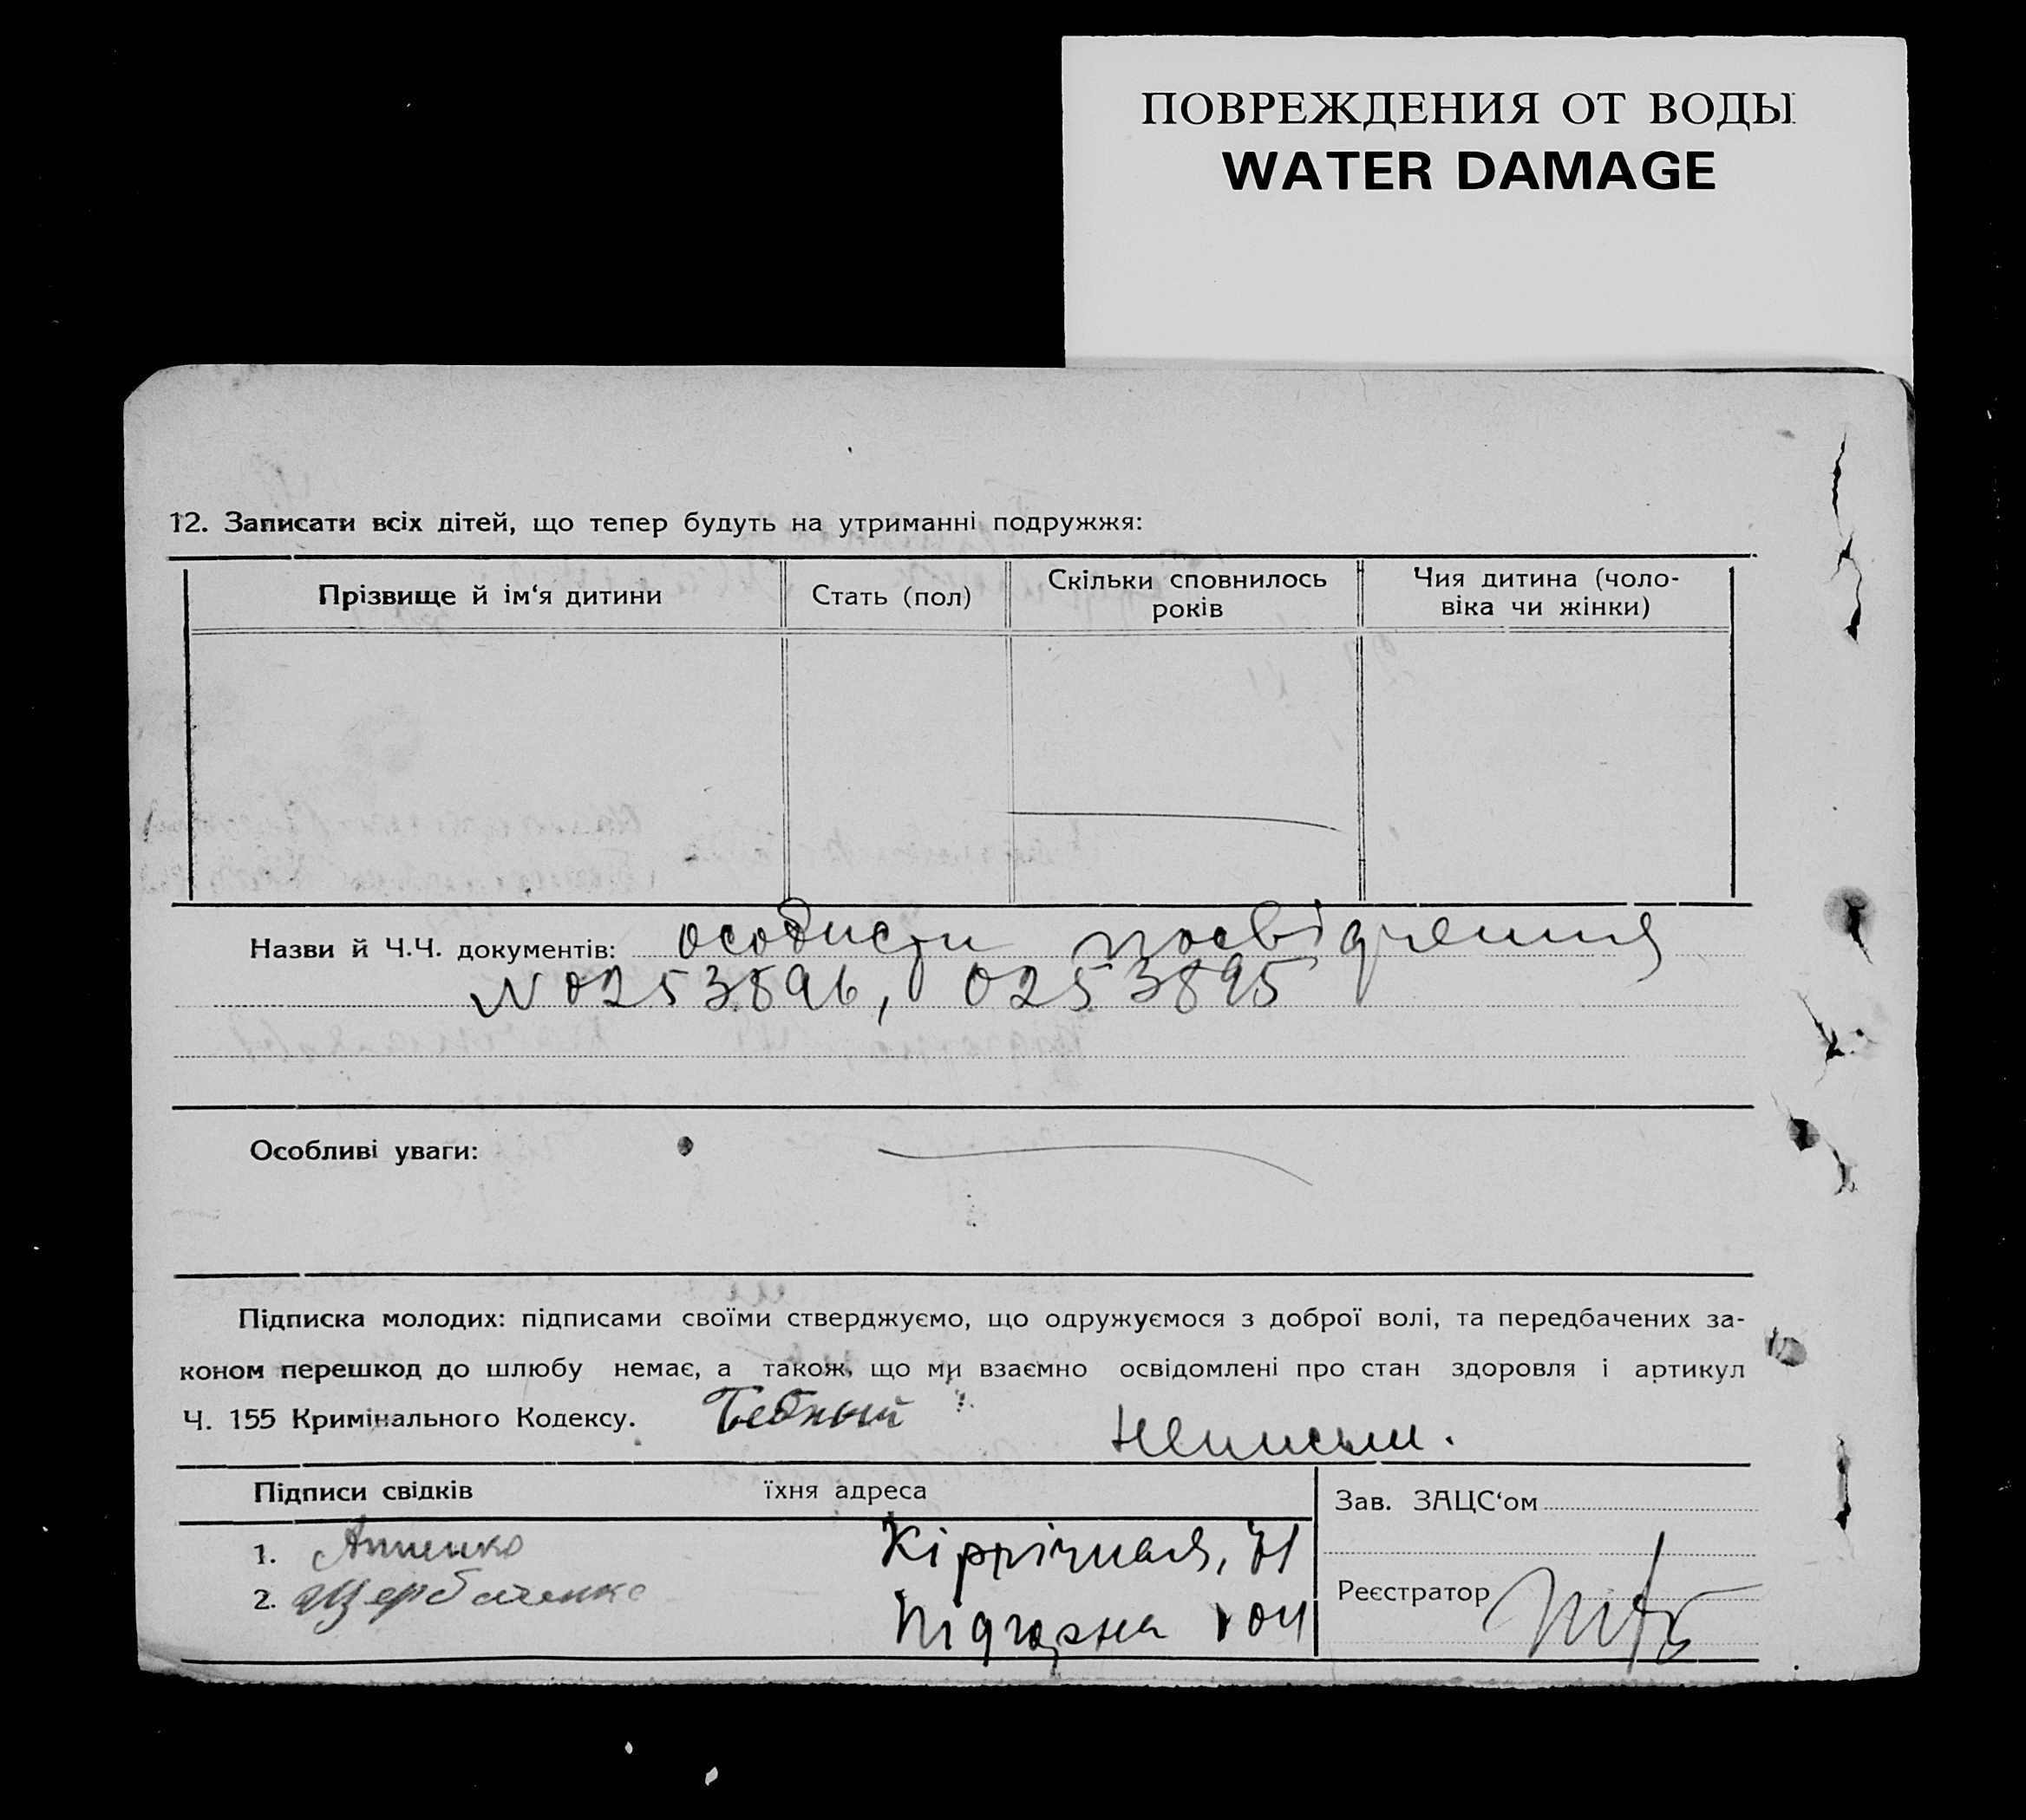 ПОВРЕЖДЕНИЯ ОТ ВОДЫ
WATER DAMAGE
12. Записати всіх дітей, що тепер будуть на утриманні подружжя:
Прізвище й ім‘я дитини
Стать (пол)
Скільки сповнилось
років
Чия дитина (чоло-
віка чи жінки)
Назви й Ч.Ч. документів: особисти посвідчення
N 0253896, 0253895
Особливі уваги:
Підписка молодих: підписами своїми стверджуємо, що одружуємося з доброї волі, та передбачених за-
коном перешкод до шлюбу немає, а також, що ми взаємно освідомлені про стан здоровля і артикул
Ч. 155 Кримінального Кодексу.
Неписьм.
Підписи свідків їхня адреса
Зав. ЗАЦС‘ом
1. 71
2. Щербаченко Підгорна 104
Реєстратор